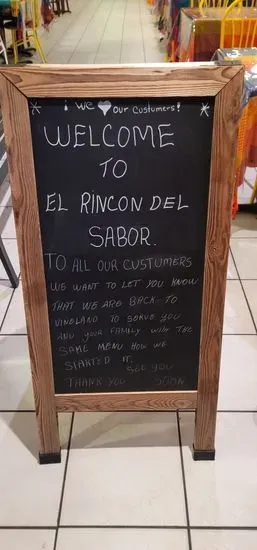 ¡ We ♥ Our Customers!
WELCOME
TO
EL RINCON DEL
SABOR.
TO ALL OUR CUSTUMERS
WE WANT TO LET YOU KNOW
THAT WE ARE BACK TO
VINELAND TO SERVE YOU
AND YOUR FAMILY WITH THE
SAME MENU HOW WE
STARTED IT.
SEE YOU
THANK YOU SOON